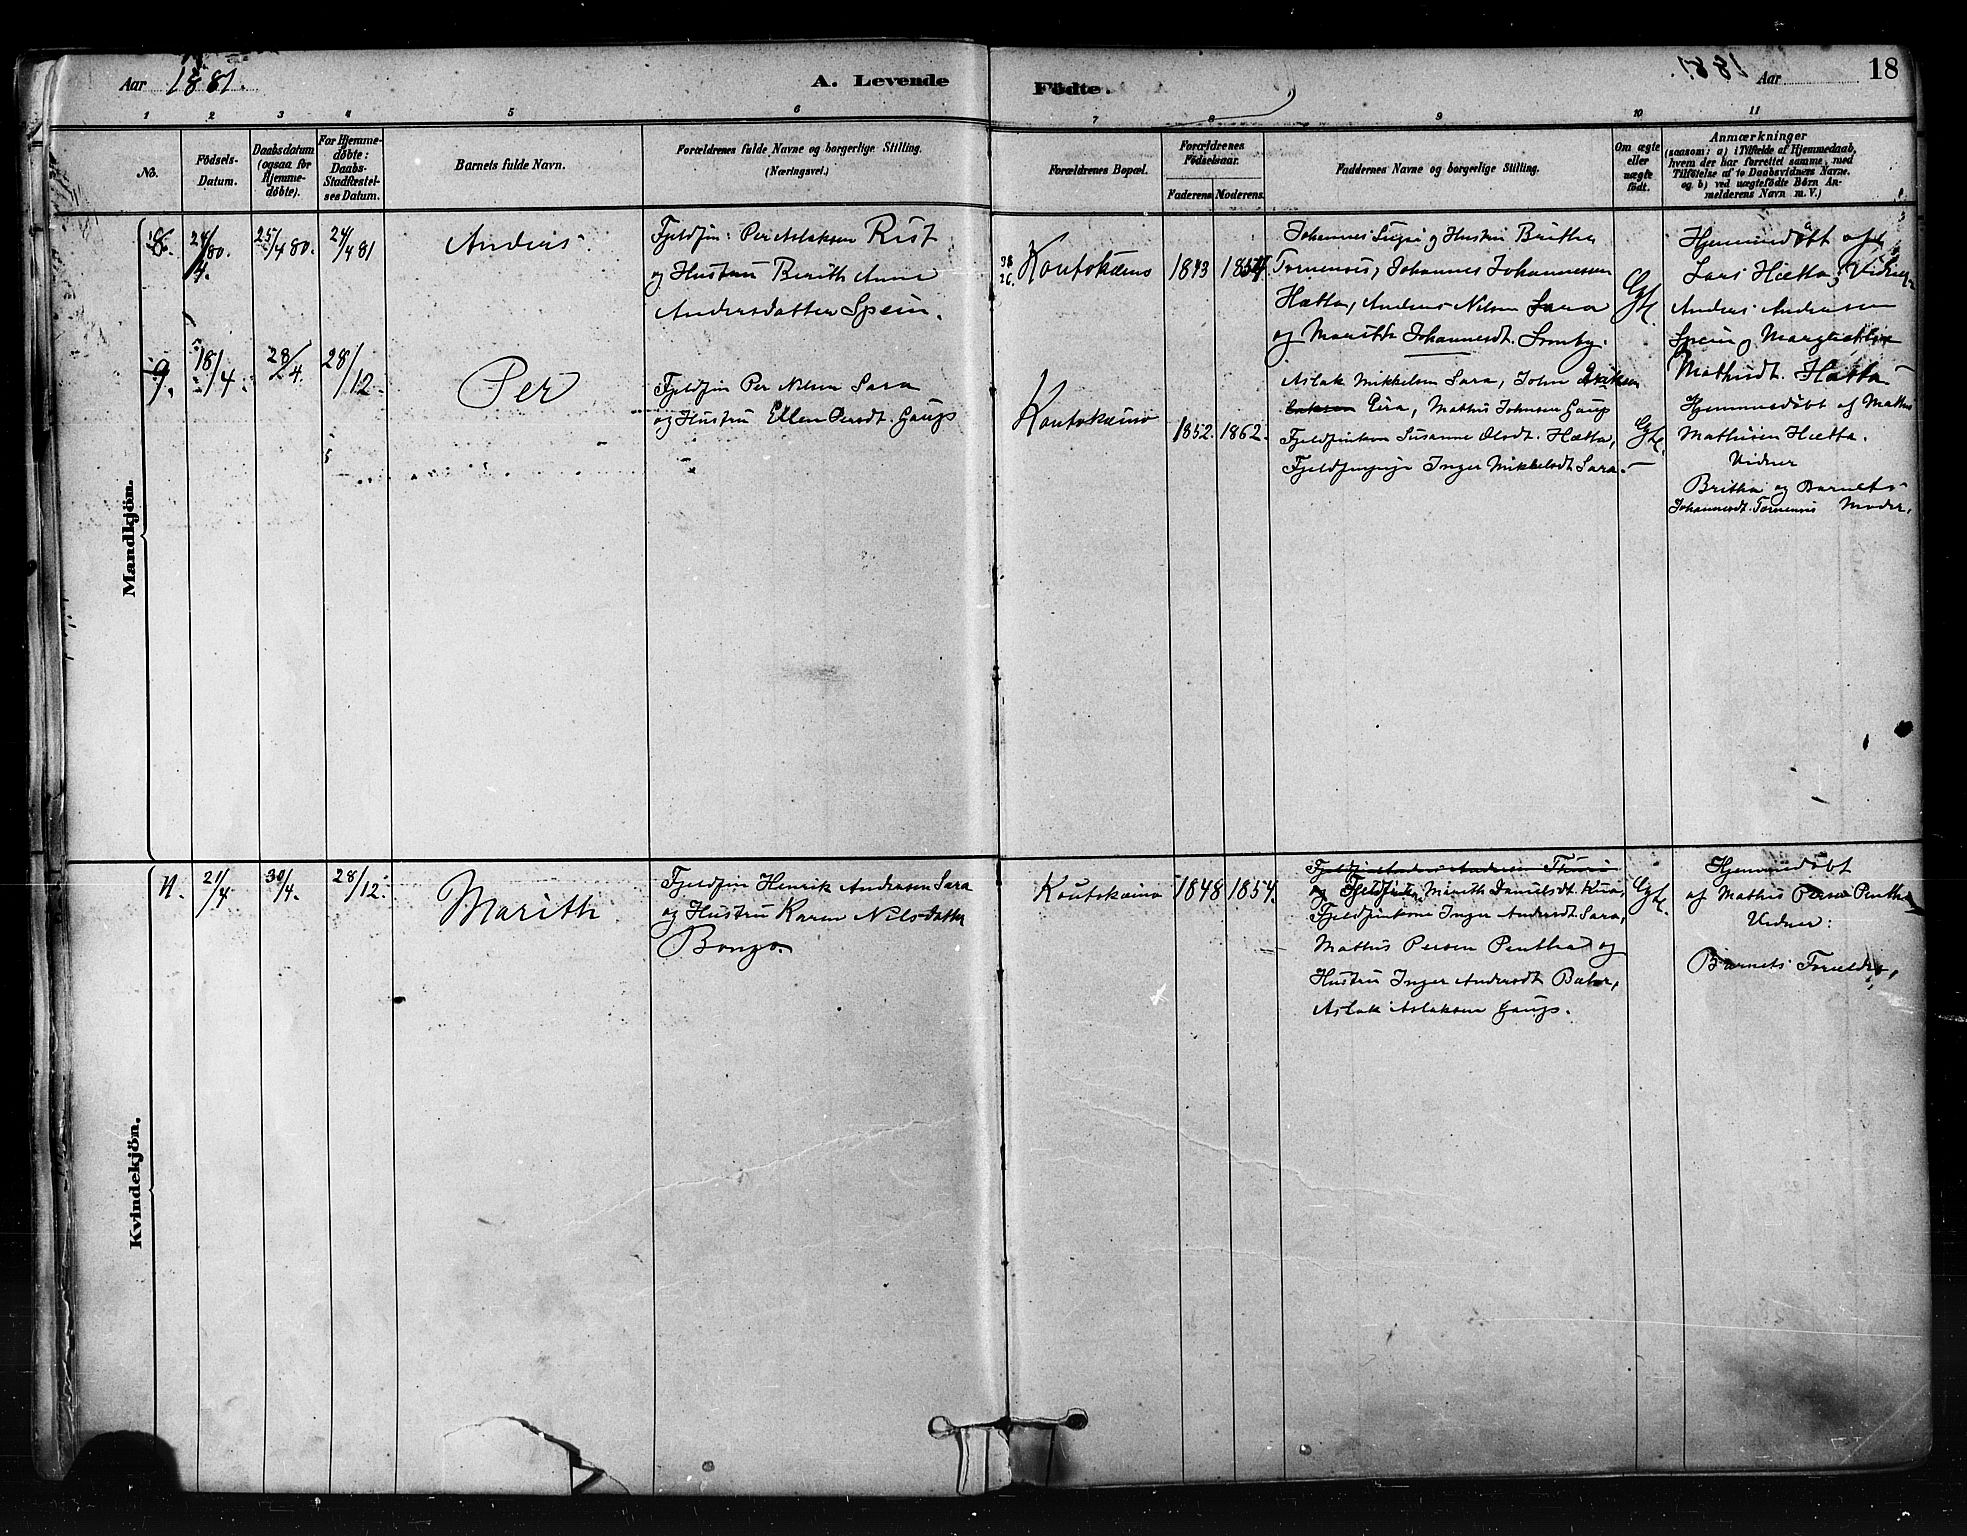 Aar 1881.
A. Levende
Födte.
1881. Aar
18
1 2 3 4 5 6 7 8 9 10 11
No.
Födsels-
Datum.
Daabsdatum
(ogsaa før
Hjemme-
døbte).
For Hjemme-
døbte:
Daabs-
Stadfæstel-
ses Datum.
Barnets fulde Navn.
Forældrenes fulde Navne og borgerlige Stilling.
(Næringsvei.)
Forældrenes Bopæl.
Forældrenes
Födselsaar.
Faderens Moderens.
Faddernes Navne og borgerlige Stilling.
Om ægte
eller
uægte
født.
Anmærkninger
(saasom: a) i Tilfælde af Hjemmedaab,
hvem der har forrettet samme, med
Tilföielse af to Daabsvidners Navne.
og b) ved uægtefödte Börn An-
melderens Navn m. V.)
Mandkjön.
8. 24/4 80. 25/4 80. 24/4 81
Anders
Fjeldfin: Per Aslaksen Rist
og Hustru Berith Anne
Andersdatter Spein.
Koutokæino
1843 1854
Johannes og Hustru Britha
Tornensis, Johannes Johannessen
Hætta, Anders Nilsen Sara
og Marith Johannesdt. Somby.
Hjemmedøbt af
Lars Hætta, Vidner
Anders Andersen
Spein og
Mathisdt. Hætta
9. 18/4 28/4. 28/12
Per
Fjeldfin Per Nilsen Sara
og Hustru Ellen Persdt. Gaup
Koutokæino
1852. 1862.
Aslak Mikkelsen Sara, John
Eira, Mathis Johnsen Gaup
Fjeldfinkone Susanne Olsdt. Hætta,
Fjeldfinpige Inger Mikkelsdt Sara.
Hjemmedøbt af Mathis
Mathisen Hætta.
Vidner
Britha og Barnets
Johannesdt. Tornensis Moder.
Kvindekjön.
11. 21/4 30/4. 28/12.
Marith
Fjeldfin Henrik Andersen Sara
og Hustru Karen Nilsdatter
Bongo.
Koutokæino
1848 1854.
Fjeldfin Anders Andersen
og Marith Danielsdt.
Fjeldfinkone Inger Andersdt Sara,
Mathis Persen Pentha og
Hustru Inger Andersdt
Aslak Aslaksen Gaup.
Hjemmedøbt
af Mathis Persen Pentha
Vidner:
Barnets Forældre.